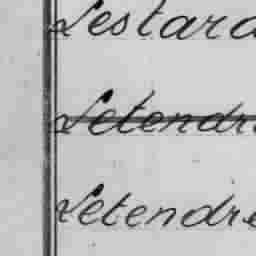 Lestard
Letendre
Letendre